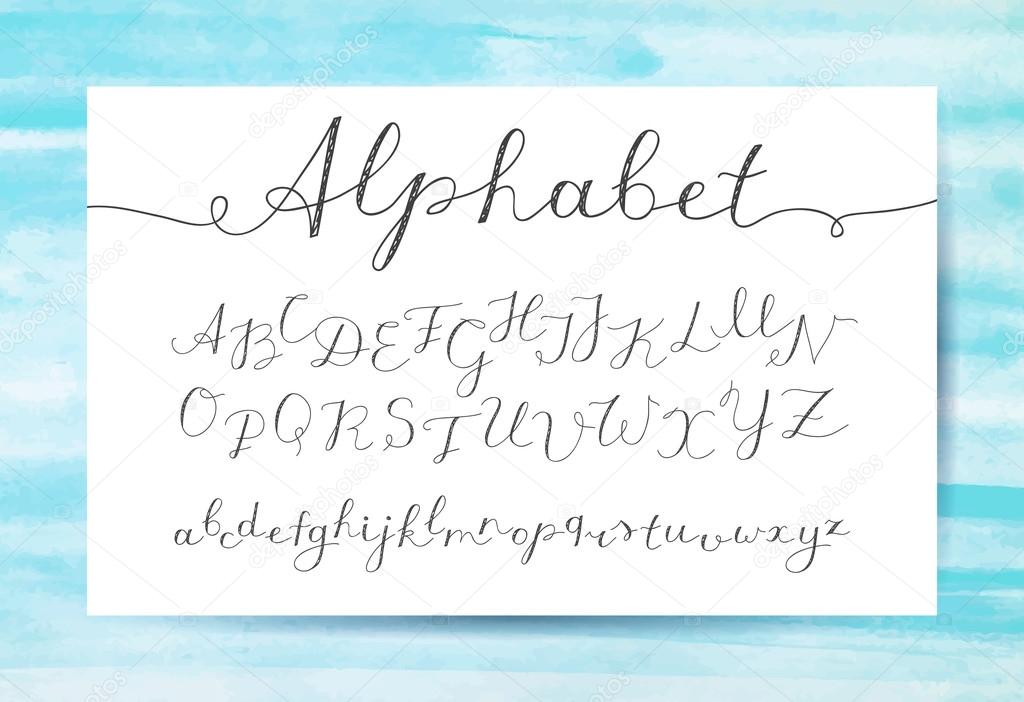 Alphabet
ABCDEFGHIJKLMN
OPQRSTUVWXYZ
abcdefghijklmnopqrstuvwxyz